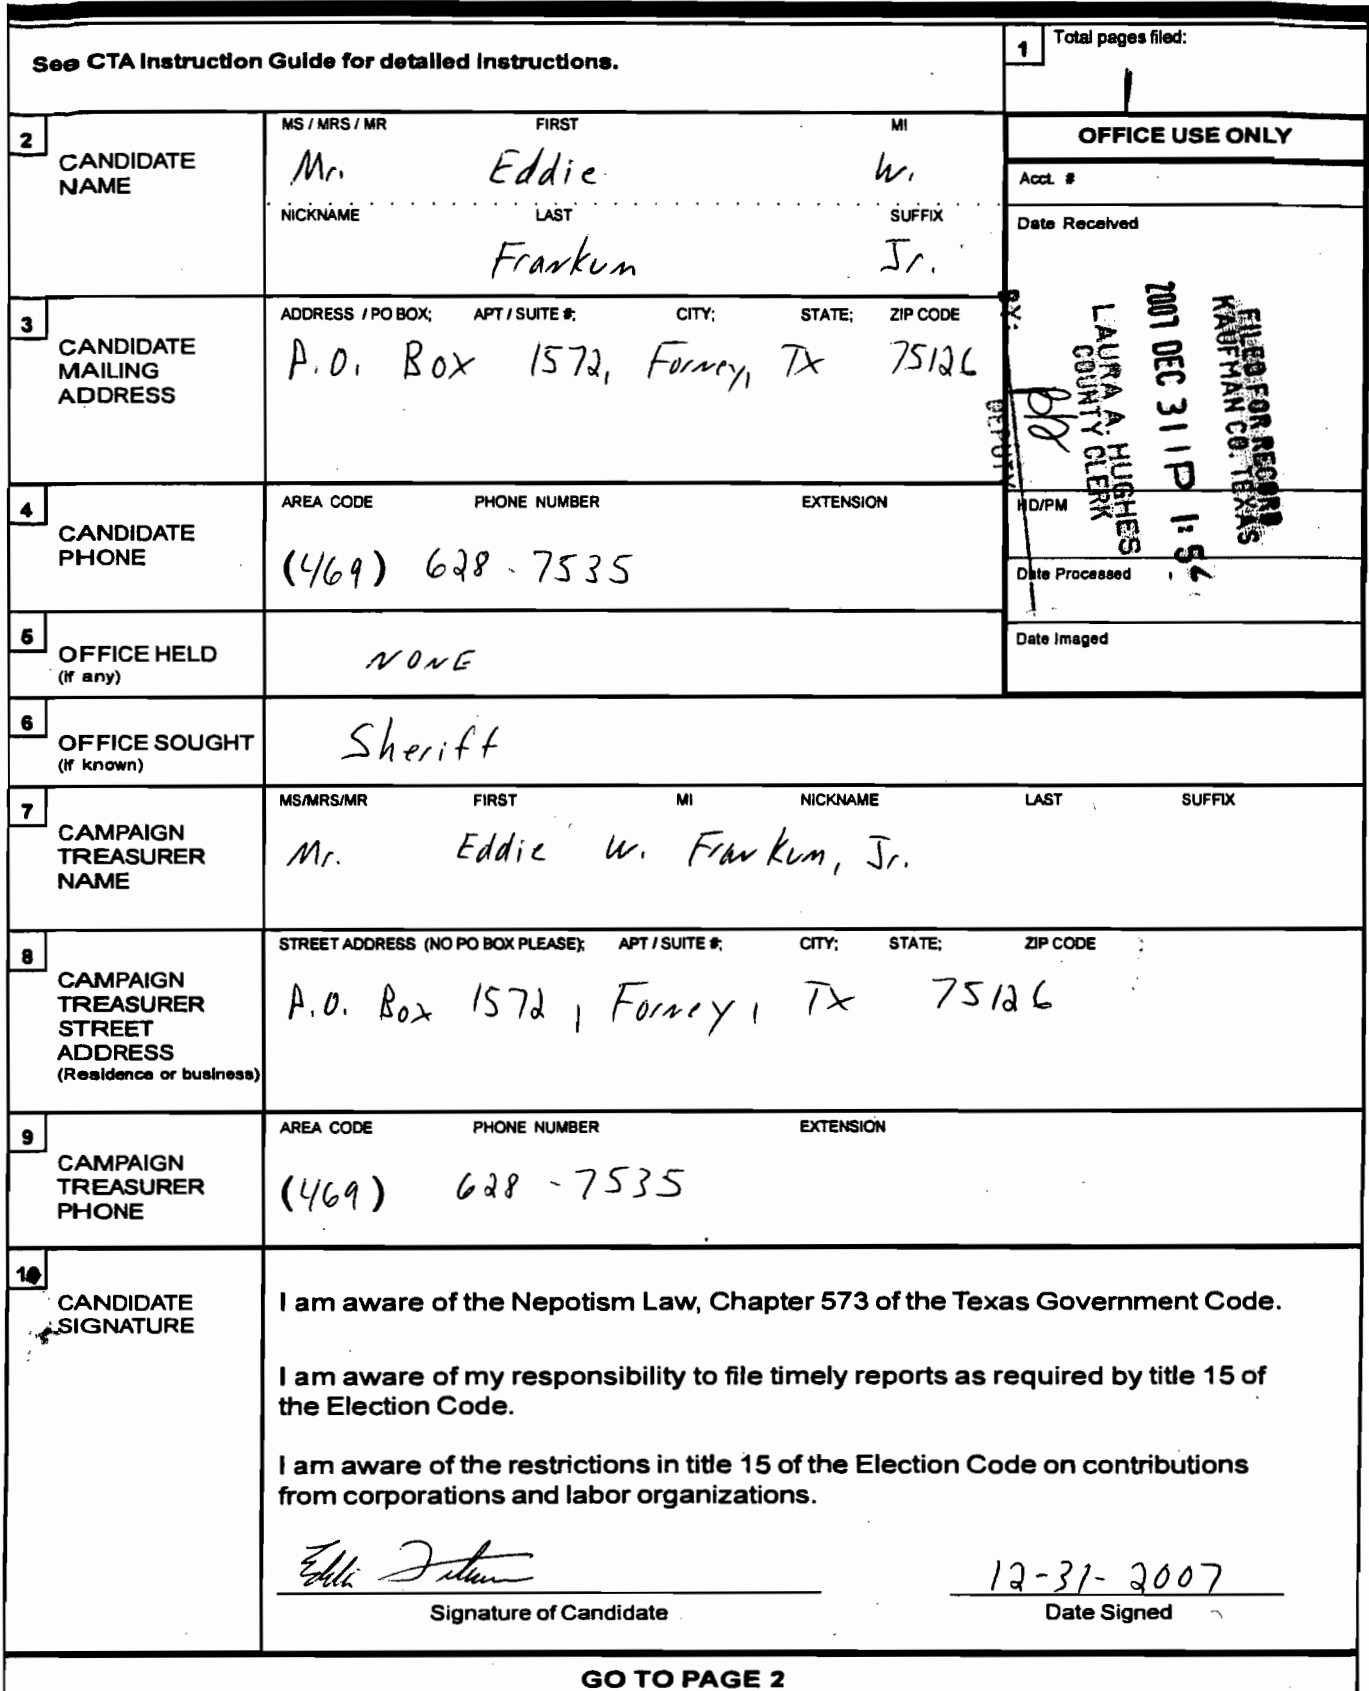 See CTA Instruction Guide for detailed instructions.
1 Total pages filed:
1
2 CANDIDATE NAME
MS / MRS / MR FIRST MI
Mr. Eddie W.
NICKNAME LAST SUFFIX
Frankum Jr.
OFFICE USE ONLY
Acct. #
Date Received
FILED FOR RECORD
KAUFMAN CO. TEXAS
2007 DEC 31 P 1:56
LAURA A. HUGHES
COUNTY CLERK
BY:
DEPUTY
HD/PM
Date Processed
Date Imaged
3 CANDIDATE MAILING ADDRESS
ADDRESS / PO BOX; APT / SUITE #; CITY; STATE; ZIP CODE
P.O. Box 1572, Forney, TX 75126
4 CANDIDATE PHONE
AREA CODE PHONE NUMBER EXTENSION
(469) 628-7535
5 OFFICE HELD
(if any)
NONE
6 OFFICE SOUGHT
(if known)
Sheriff
7 CAMPAIGN TREASURER NAME
MS/MRS/MR FIRST MI NICKNAME LAST SUFFIX
Mr. Eddie W. Frankum, Jr.
8 CAMPAIGN TREASURER STREET ADDRESS
(Residence or business)
STREET ADDRESS (NO PO BOX PLEASE); APT / SUITE #; CITY; STATE; ZIP CODE
P.O. Box 1572, Forney, TX 75126
9 CAMPAIGN TREASURER PHONE
AREA CODE PHONE NUMBER EXTENSION
(469) 628-7535
10 CANDIDATE SIGNATURE
I am aware of the Nepotism Law, Chapter 573 of the Texas Government Code.
I am aware of my responsibility to file timely reports as required by title 15 of
the Election Code.
I am aware of the restrictions in title 15 of the Election Code on contributions
from corporations and labor organizations.
12-31-2007
Signature of Candidate Date Signed
GO TO PAGE 2